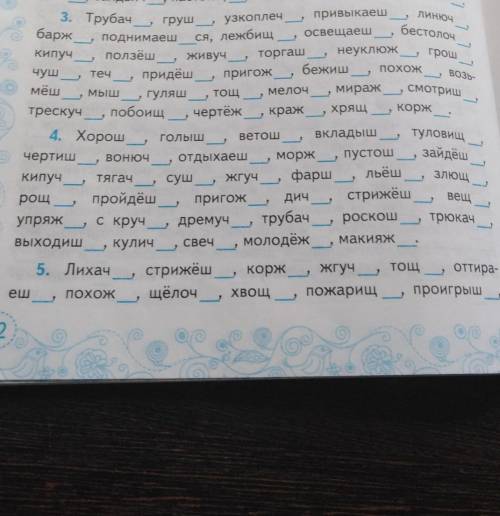 3. Трубач__, груш__, узкоплеч__, привыкаеш__, линюч__
барж__, поднимаеш__ся, лежбищ__, освещаеш__, бестолоч__
кипуч__, ползёш__, живуч__, торгаш__, неуклюж__, грош__
чуш__, теч__, придёш__, пригож__, бежиш__, похож__, возь-
мёш__, мыш__, гуляш__, тощ__, мелоч__, мираж__, смотриш__
трескуч__, побоищ__, чертёж__, краж__, хрящ__, корж__.
4. Хорош__, голыш__, ветош__, вкладыш__, туловищ__
чертиш__, вонюч__, отдыхаеш__, морж__, пустош__, зайдёш__
кипуч__, тягач__, суш__, жгуч__, фарш__, льёш__, злющ__
рощ__, пройдёш__, пригож__, дич__, стрижёш__, вещ__
упряж__, с круч__, дремуч__, трубач__, роскош__, трюкач__
выходиш__, кулич__, свеч__, молодёж__, макияж__.
5. Лихач__, стрижёш__, корж__, жгуч__, тощ__, оттира-
еш__, похож__, щёлоч__, хвощ__, пожарищ__, проигрыш__
2